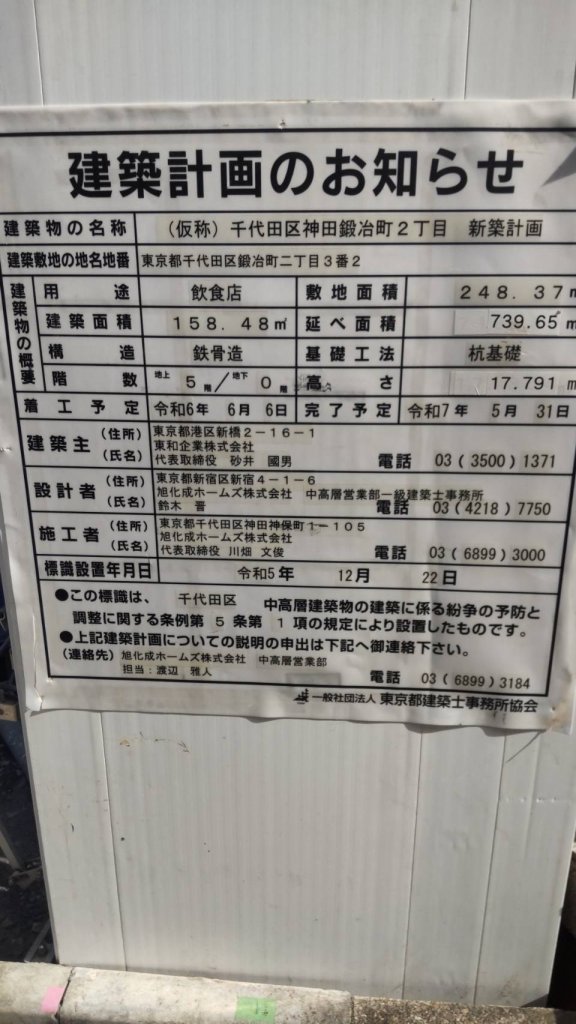 建築計画のお知らせ
建築物の名称 （仮称）千代田区神田鍛冶町２丁目 新築計画
建築敷地の地名地番 東京都千代田区鍛冶町二丁目３番２
建築物の概要
用途 飲食店 敷地面積 248.37㎡
建築面積 158.48㎡ 延べ面積 739.65㎡
構造 鉄骨造 基礎工法 杭基礎
階数 地上 5階／地下 0階 高さ 17.791m
着工予定 令和6年 6月 6日 完了予定 令和7年 5月 31日
建築主 （住所） 東京都港区新橋２－１６－１
（氏名） 東和企業株式会社
代表取締役 砂井 國男 電話 03(3500)1371
設計者 （住所） 東京都新宿区新宿４－１－６
（氏名） 旭化成ホームズ株式会社 中高層営業部一級建築士事務所
鈴木 晋 電話 03(4218)7750
施工者 （住所） 東京都千代田区神田神保町1－105
（氏名） 旭化成ホームズ株式会社
代表取締役 川畑 文俊 電話 03(6899)3000
標識設置年月日 令和5年 12月 22日
●この標識は、 千代田区 中高層建築物の建築に係る紛争の予防と
調整に関する条例第 5 条第 1 項の規定により設置したものです。
●上記建築計画についての説明の申出は下記へ御連絡下さい。
（連絡先） 旭化成ホームズ株式会社 中高層営業部
担当：渡辺 雅人 電話 03(6899)3184
一般社団法人 東京都建築士事務所協会